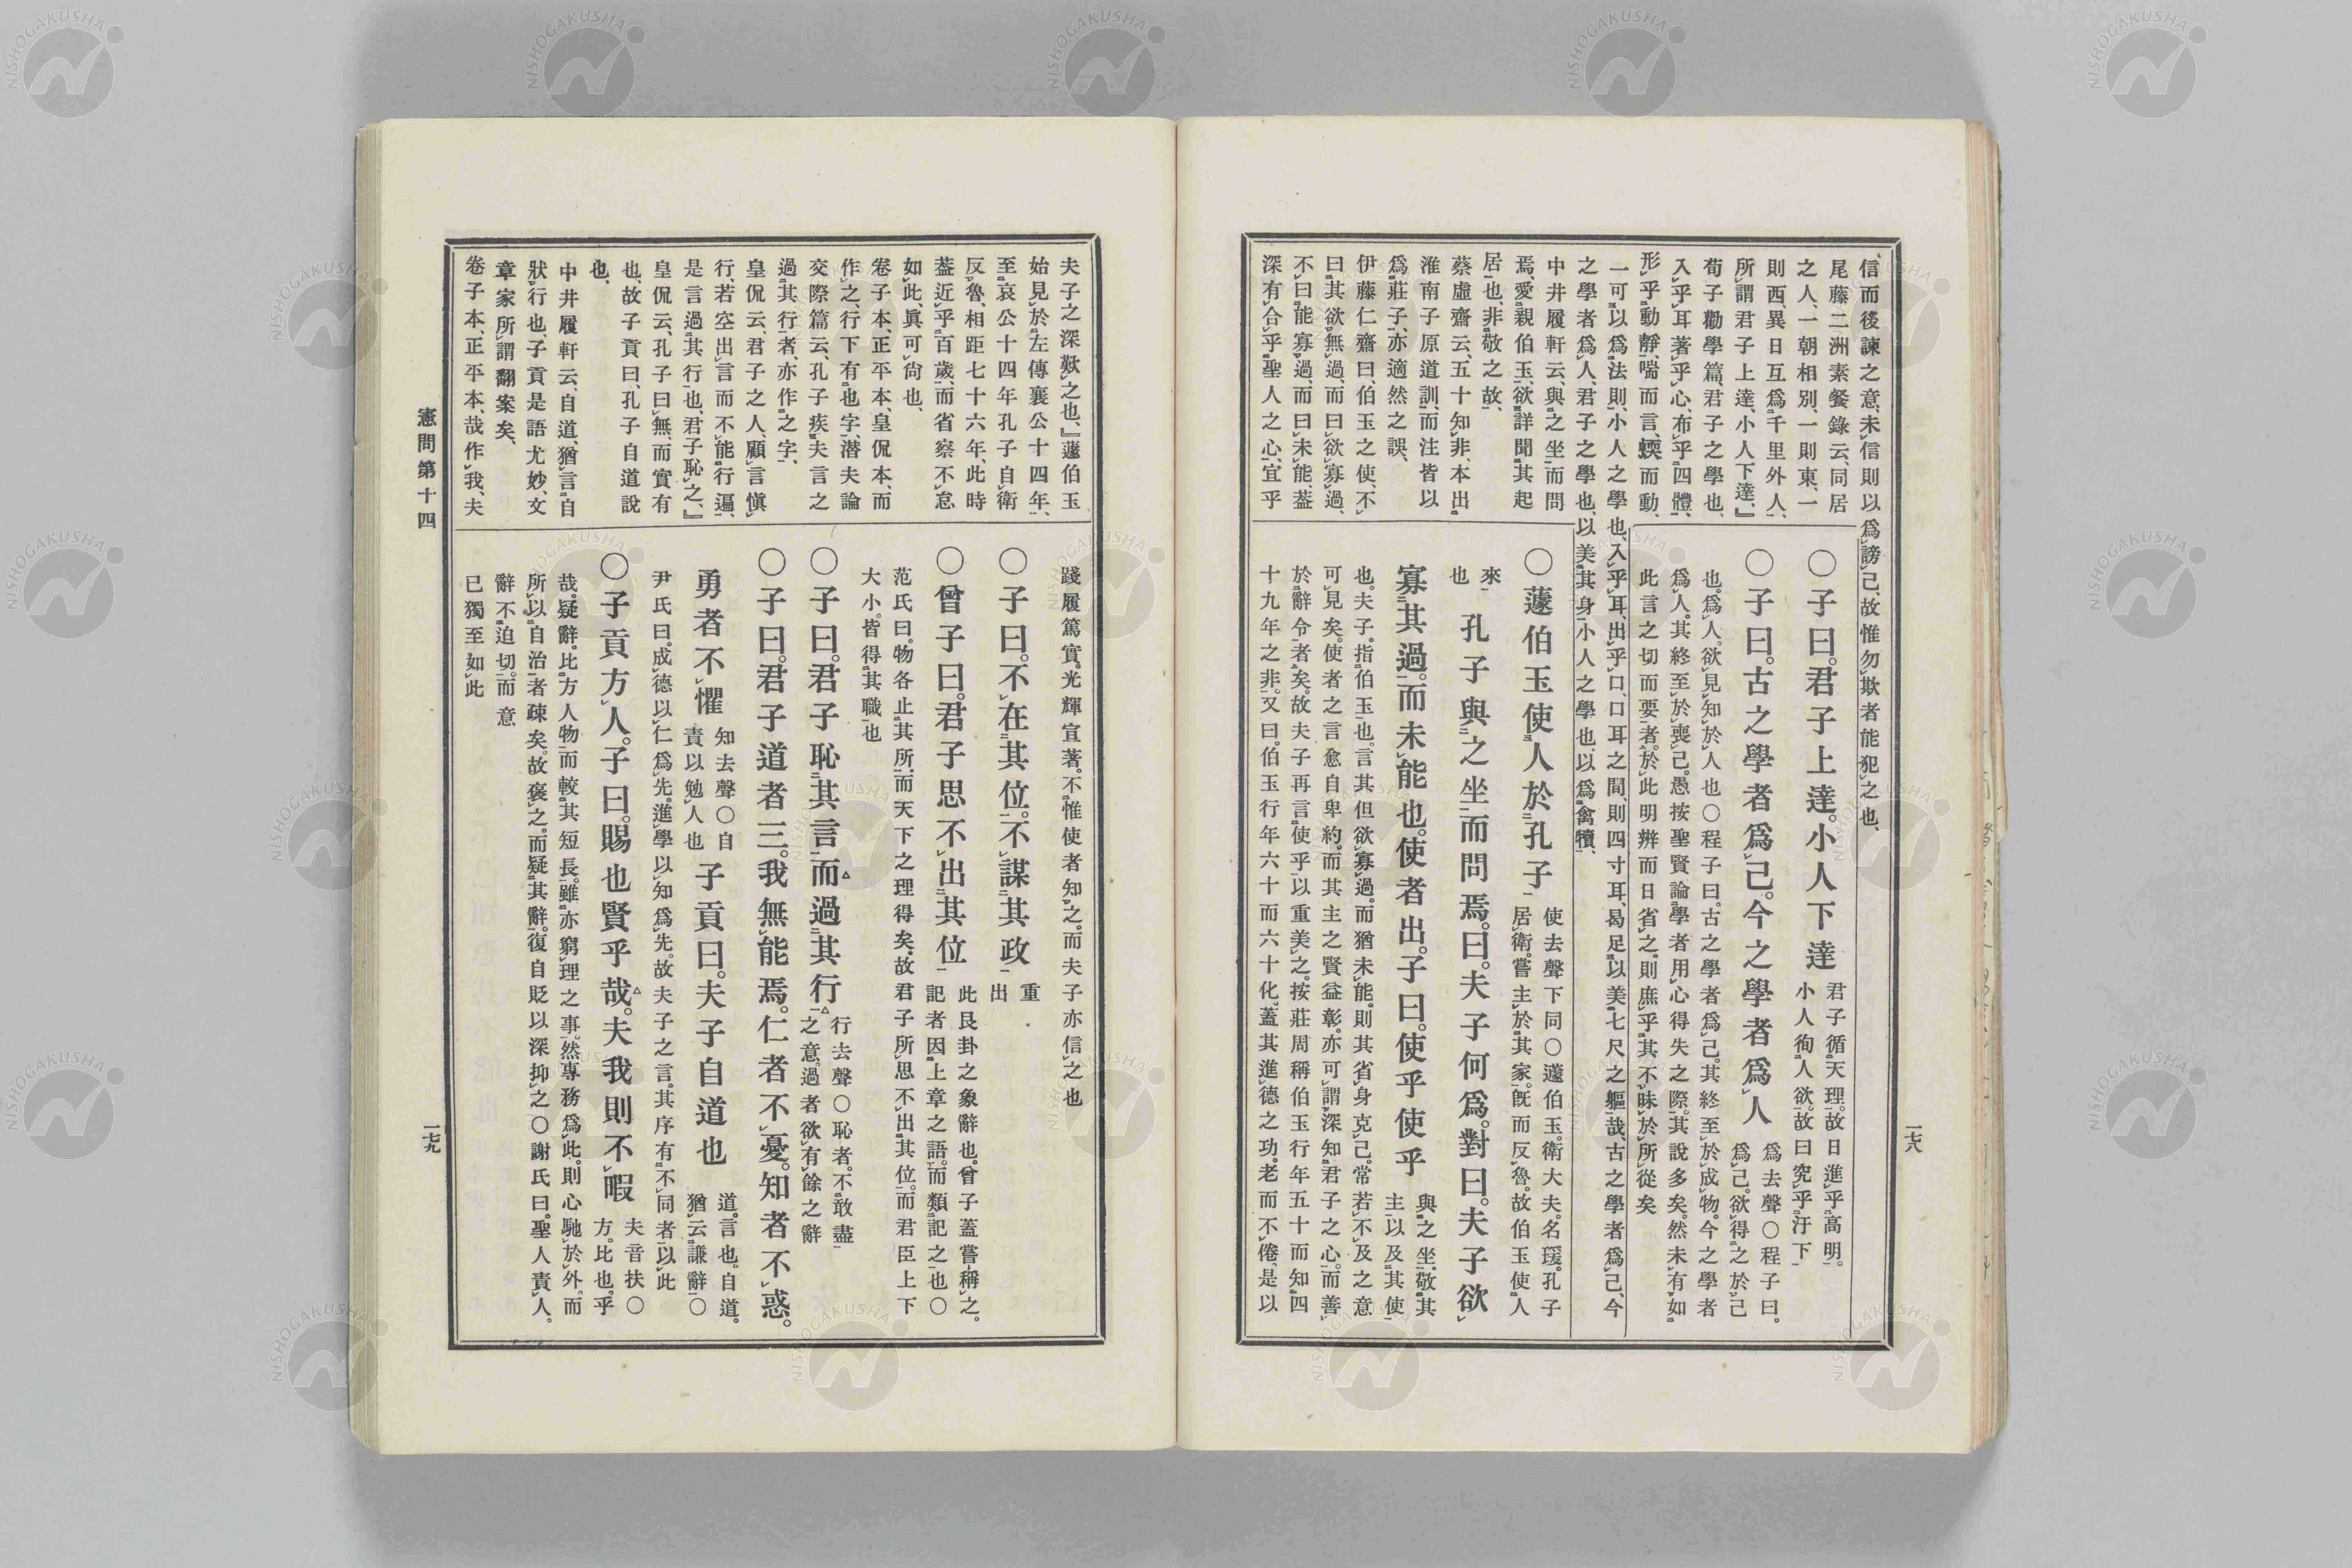 信而後諫之意、未信則以爲謗己、故惟勿欺者能犯之也、
尾藤二洲素餐錄云、同居
之人、一朝相別、一則東、一
則西、異日互爲千里外人、
所謂君子上達、小人下達、』
荀子勸學篇、君子之學也、
入乎耳著乎心、布乎四體、
形乎動靜、喘而言、蝡而動、
一可以爲法則、小人之學也、入乎耳、出乎口、口耳之間、則四寸耳、曷足以美七尺之軀哉、古之學者爲己、今
之學者爲人、君子之學也、以美其身、小人之學也、以爲禽犢、
中井履軒云、與之坐而問
焉、愛親伯玉、欲詳聞其起
居也、非敬之故、
蔡虛齋云、五十知非、本出
淮南子原道訓、而注皆以
爲莊子、亦適然之誤、
伊藤仁齋曰、伯玉之使、不
曰其欲無過、而曰欲寡過、
不曰能寡過、而曰未能、蓋
深有合乎聖人之心、宜乎
〇子曰。君子上達。小人下達
君子循天理。故日進乎高明。
小人徇人欲。故曰究乎汙下
〇子曰。古之學者爲己。今之學者爲人
爲去聲〇程子曰。
爲己。欲得之於己
也。爲人。欲見知於人也〇程子曰。古之學者爲己。其終至於成物。今之學者
爲人。其終至於喪己。愚按聖賢論學者用心得失之際。其說多矣。然未有如
此言之切而要者。於此明辨而日省之。則庶乎其不昧於所從矣
〇蘧伯玉使人於孔子
使去聲下同〇蘧伯玉。衛大夫。名瑗。孔子
居衛。嘗主於其家。旣而反魯。故伯玉使人
來
也
孔子與之坐而問焉。曰。夫子何爲。對曰。夫子欲
寡其過。而未能也。使者出。子曰。使乎使乎
與之坐。敬其
主以及其使
也。夫子。指伯玉也。言其但欲寡過。而猶未能。則其省身克己。常若不及之意
可見矣。使者之言愈自卑約。而其主之賢益彰。亦可謂深知君子之心。而善
於辭令者矣。故夫子再言使乎以重美之。按莊周稱伯玉行年五十而知四
十九年之非。又曰。伯玉行年六十而六十化。蓋其進德之功。老而不倦。是以
一七八
夫子之深歎之也、』蘧伯玉
始見於左傳襄公十四年、
至哀公十四年孔子自衛
反魯、相距七十六年、此時
蓋近乎百歲、而省察不怠
如此、眞可尙也、
卷子本、正平本、皇侃本、而
作之、行下有也字、潛夫論
交際篇云、孔子疾夫言之
過其行者、亦作之字、
皇侃云、君子之人、顧言愼
行、若空出言而不能行逼、
是言過其行也、君子恥之、』
皇侃云、孔子曰無、而實有
也、故子貢曰、孔子自道說
也、
中井履軒云、自道、猶言自
狀行也、子貢是語尤妙、文
章家所謂翻案矣、
卷子本、正平本、哉作我、夫
踐履篤實。光輝宣著。不惟使者知之。而夫子亦信之也
〇子曰。不在其位。不謀其政
重
出
〇曾子曰。君子思不出其位
此艮卦之象辭也。曾子蓋嘗稱之。
記者因上章之語。而類記之也〇
范氏曰。物各止其所。而天下之理得矣。故君子所思不出其位。而君臣上下
大小。皆得其職也
〇子曰。君子恥其言而過其行
行去聲〇恥者。不敢盡
之意。過者欲有餘之辭
〇子曰。君子道者三。我無能焉。仁者不憂。知者不惑。
勇者不懼
知去聲〇自
責以勉人也
子貢曰。夫子自道也
道。言也。自道。
猶云謙辭〇
尹氏曰。成德以仁爲先。進學以知爲先。故夫子之言。其序有不同者以此
〇子貢方人。子曰。賜也賢乎哉。夫我則不暇
夫音扶〇
方。比也。乎
哉。疑辭。比方人物而較其短長。雖亦窮理之事。然專務爲此。則心馳於外。而
所以自治者疎矣。故褒之。而疑其辭。復自貶以深抑之〇謝氏曰。聖人責人。
辭不迫切。而意
已獨至如此
憲問第十四
一七九